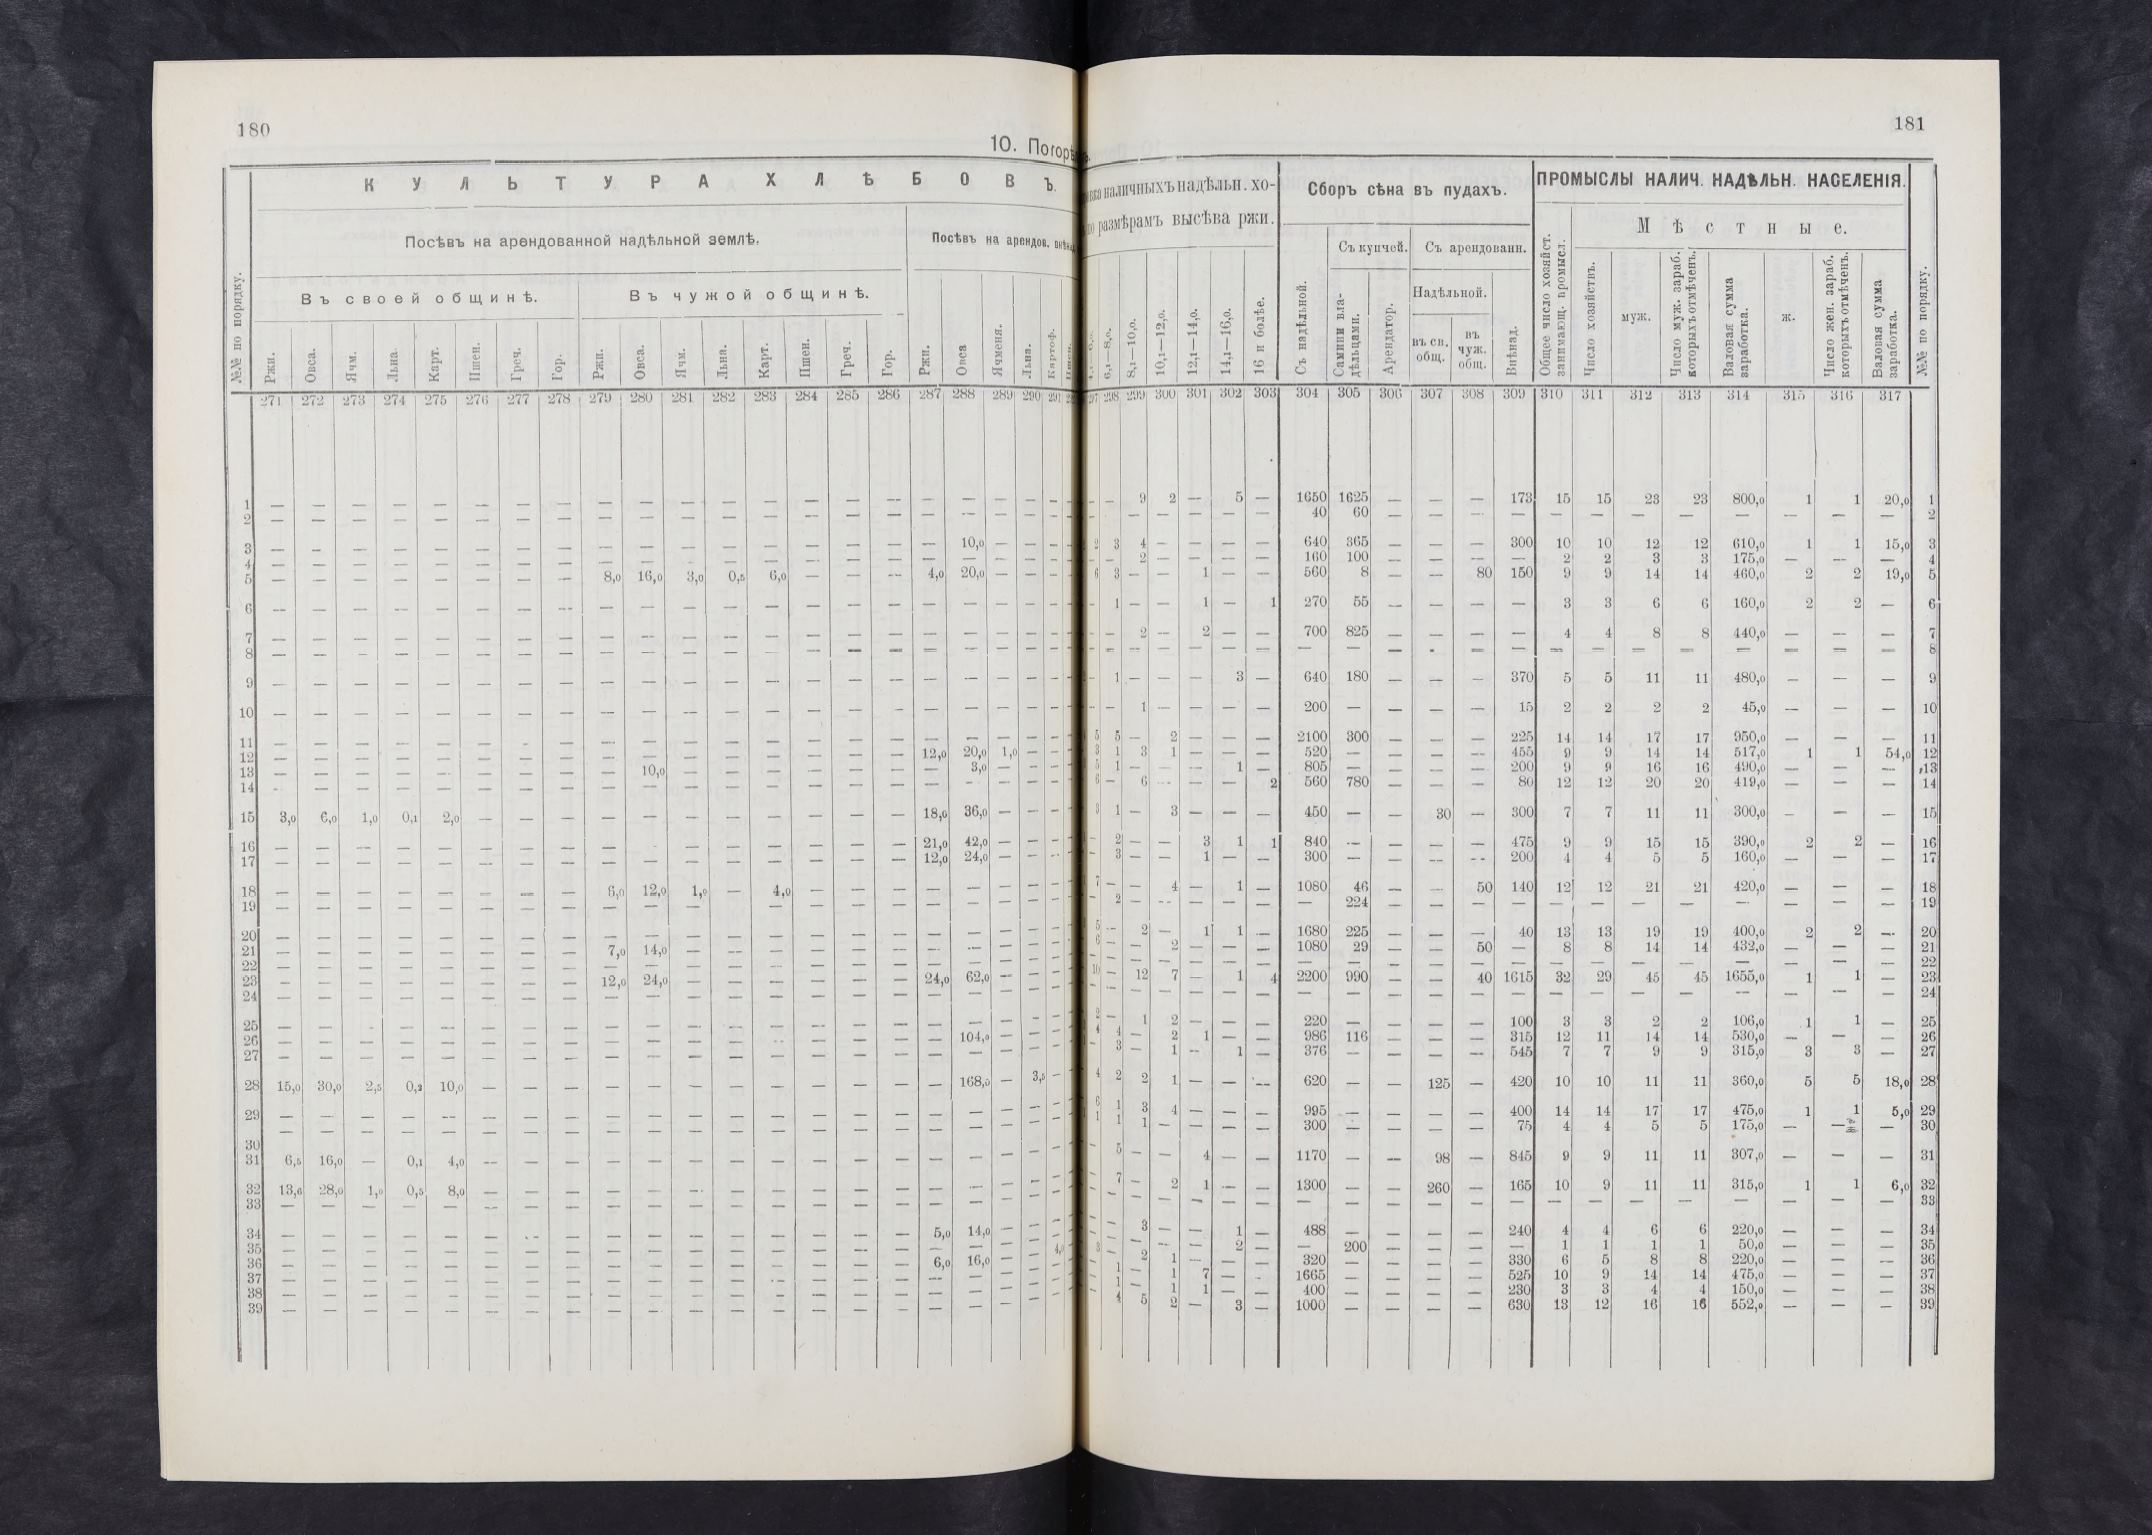 180
181
10. Погорѣ
К У Л Ь Т У Р А Х Л Ѣ Б О В Ъ.
наличныхъ надѣльн. хо-
Сборъ сѣна въ пудахъ.
ПРОМЫСЛЫ НАЛИЧ. НАДѢЛЬН. НАСЕЛЕНІЯ.
№№ по порядку.
Посѣвъ на арендованной надѣльной землѣ.
Посѣвъ на арендов. внѣнад
по размѣрамъ высѣва ржи.
Съ надѣльной.
Съ купчей.
Съ арендованн.
Общее число хозяйст. занимающ. промысл.
М ѣ с т н ы е.
№№ по порядку.
Въ своей общинѣ.
Въ чужой общинѣ.
Самими вла-
дѣльцами.
Арендатор.
Надѣльной.
въ св. общ.
въ чуж. общ.
Внѣнад.
Число хозяйствъ.
муж.
Число муж. зараб. которыхъ отмѣченъ.
Валовая сумма заработка.
ж.
Число жен. зараб. которыхъ отмѣченъ.
Валовая сумма заработка.
Ржи. Овса. Ячм. Льна Карт. Пшен. Греч. Гор. Ржи. Овса. Ячм. Льна. Карт. Пшен. Греч. Гор. Ржи. Овса Ячменя. Льна. Картоф.
6,1—8,0. 8,1—10,0. 10,1—12,0. 12,1—14,0. 14,1—16,0. 16 и болѣе.
271 272 273 274 275 276 277 278 279 280 281 282 283 284 285 286 287 288 289 290 291
298 299 300 301 302 303 304 305 306 307 308 309 310 311 312 313 314 315 316 317
1 — — — — — — — — — — — — — — — — — — — — —
— 9 2 — 5 — 1650 1625 — — — 173 15 15 23 23 800,0 1 1 20,0 1
2 — — — — — — — — — — — — — — — — — — — — —
— — — — — — 40 60 — — — — — — — — — — — — 2
3 — — — — — — — — — — — — — — — — — 10,0 — — —
2 3 4 — — — — 640 365 — — — 300 10 10 12 12 610,0 1 1 15,0 3
4 — — — — — — — — — — — — — — — — — — — — —
— 2 — — — — 160 100 — — — — 2 2 3 3 175,0 — — — 4
5 — — — — — — — — 8,0 16,0 3,0 0,5 6,0 — — — 4,0 20,0 — — —
6 3 — — 1 — — 560 8 — — 80 150 9 9 14 14 460,0 2 2 19,0 5
6 — — — — — — — — — — — — — — — — — — — — —
1 — — 1 — 1 270 55 — — — — 3 3 6 6 160,0 2 2 — 6
7 — — — — — — — — — — — — — — — — — — — — —
— 2 — 2 — — 700 825 — — — — 4 4 8 8 440,0 — — — 7
8 — — — — — — — — — — — — — — — — — — — — —
— — — — — — — — — — — — — — — — — — — — 8
9 — — — — — — — — — — — — — — — — — — — — —
1 — — — 3 — 640 180 — — — 370 5 5 11 11 480,0 — — — 9
10 — — — — — — — — — — — — — — — — — — — — —
— 1 — — — — 200 — — — — 15 2 2 2 2 45,0 — — — 10
11 — — — — — — — — — — — — — — — — — — — — —
5 5 — 2 — — — 2100 300 — — — 225 14 14 17 17 950,0 — — — 11
12 — — — — — — — — — — — — — — — — 12,0 20,0 1,0 — —
3 1 3 1 — — — 520 — — — — 455 9 9 14 14 517,0 1 1 54,0 12
13 — — — — — — — — — 10,0 — — — — — — — 3,0 — — —
5 1 — — — 1 — 805 — — — — 200 9 9 16 16 490,0 — — — 13
14 — — — — — — — — — — — — — — — — — — — — —
6 — 6 — — — 2 560 780 — — — 80 12 12 20 20 419,0 — — — 14
15 3,0 6,0 1,0 0,1 2,0 — — — — — — — — — — — 18,0 36,0 — — —
3 1 — 3 — — — 450 — — 30 — 300 7 7 11 11 300,0 — — — 15
16 — — — — — — — — — — — — — — — — 21,0 42,0 — — —
2 — — 3 1 1 840 — — — — 475 9 9 15 15 390,0 2 2 — 16
17 — — — — — — — — — — — — — — — — 12,0 24,0 — — —
3 — — 1 — — 300 — — — — 200 4 4 5 5 160,0 — — — 17
18 — — — — — — — — 6,0 12,0 1,0 — 4,0 — — — — — — — —
7 — — 4 — 1 — 1080 46 — — 50 140 12 12 21 21 420,0 — — — 18
19 — — — — — — — — — — — — — — — — — — — — —
2 — — — — — — 224 — — — — — — — — — — — — 19
20 — — — — — — — — — — — — — — — — — — — — —
5 — 2 — 1 1 — 1680 225 — — — 40 13 13 19 19 400,0 2 2 — 20
21 — — — — — — — — 7,0 14,0 — — — — — — — — — — —
6 — — 2 — — — 1080 29 — — 50 — 8 8 14 14 432,0 — — — 21
22 — — — — — — — — — — — — — — — — — — — — —
— — — — — — — — — — — — — — — — — — — — 22
23 — — — — — — — — 12,0 24,0 — — — — — — 24,0 62,0 — — —
10 — 12 7 — 1 4 2200 990 — — 40 1615 32 29 45 45 1655,0 1 1 — 23
24 — — — — — — — — — — — — — — — — — — — — —
— — — — — — — — — — — — — — — — — — — — 24
25 — — — — — — — — — — — — — — — — — — — — —
2 — 1 2 — — — 220 — — — — 100 3 3 2 2 106,0 1 1 — 25
26 — — — — — — — — — — — — — — — — — 104,0 — — —
4 4 — 2 1 — — 986 116 — — — 315 12 11 14 14 530,0 — — — 26
27 — — — — — — — — — — — — — — — — — — — — —
— 3 — 1 — 1 — 376 — — — — 545 7 7 9 9 315,0 3 3 — 27
28 15,0 30,0 2,5 0,3 10,0 — — — — — — — — — — — — 168,5 — 3,5 —
4 2 2 1 — — — 620 — — 125 — 420 10 10 11 11 360,0 5 5 18,0 28
29 — — — — — — — — — — — — — — — — — — — — —
6 1 3 4 — — — 995 — — — — 400 14 14 17 17 475,0 1 1 5,0 29
30 — — — — — — — — — — — — — — — — — — — — —
1 1 1 — — — — 300 — — — — 75 4 4 5 5 175,0 — — — 30
31 6,5 16,0 — 0,1 4,0 — — — — — — — — — — — — — — — —
— 5 — — 4 — — 1170 — — 98 — 845 9 9 11 11 307,0 — — — 31
32 13,6 28,0 1,0 0,5 8,0 — — — — — — — — — — — — — — — —
— 7 — 2 1 — — 1300 — — 260 — 165 10 9 11 11 315,0 1 1 6,0 32
33 — — — — — — — — — — — — — — — — — — — — —
— — — — — — — — — — — — — — — — — — — — 33
34 — — — — — — — — — — — — — — — — 5,0 14,0 — — —
— 3 — — 1 — 488 — — — — 240 4 4 6 6 220,0 — — — 34
35 — — — — — — — — — — — — — — — — — — — — 4,0
3 — — — — 2 — — 200 — — — — 1 1 1 1 50,0 — — — 35
36 — — — — — — — — — — — — — — — — 6,0 16,0 — — —
1 2 1 — — — 320 — — — — 330 6 5 8 8 220,0 — — — 36
37 — — — — — — — — — — — — — — — — — — — — —
1 — 1 7 — — 1665 — — — — 525 10 9 14 14 475,0 — — — 37
38 — — — — — — — — — — — — — — — — — — — — —
— 1 1 — — 400 — — — — 230 3 3 4 4 150,0 — — — 38
39 — — — — — — — — — — — — — — — — — — — — —
4 5 2 — 3 — 1000 — — — — 630 13 12 16 16 552,0 — — — 39